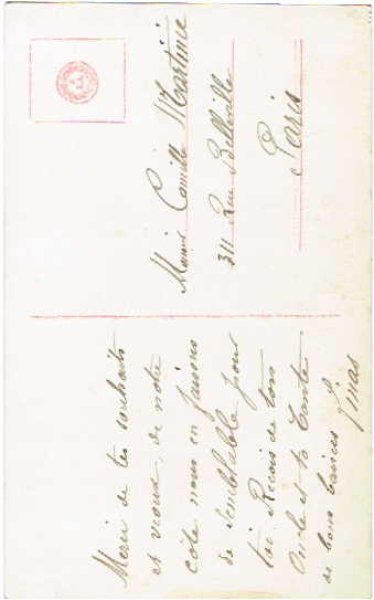 Merci de tes souhaits
et vœux, de notre
côté nous en faisons
de semblable pour
toi Reçois de ton
Oncle et ta Tante
de bons baisers
Camille Martinie
311 Rue Belleville
Paris